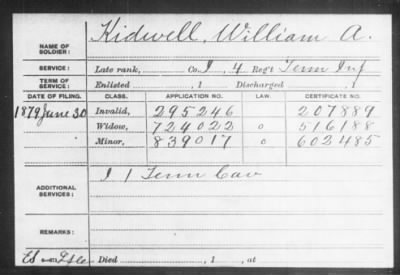 NAME OF SOLDIER: Kidwell, William A.
SERVICE: Late rank, Co. I, 4 Reg't Tenn Inf
TERM OF SERVICE: Enlisted , 1 Discharged , 1
DATE OF FILING. CLASS. APPLICATION NO. LAW. CERTIFICATE NO.
1879 June 30 Invalid, 295246 207889
Widow, 724022 o 516188
Minor, 839017 o 602485
ADDITIONAL SERVICES: I 1 Tenn Cav
REMARKS:
Died , 1 , at